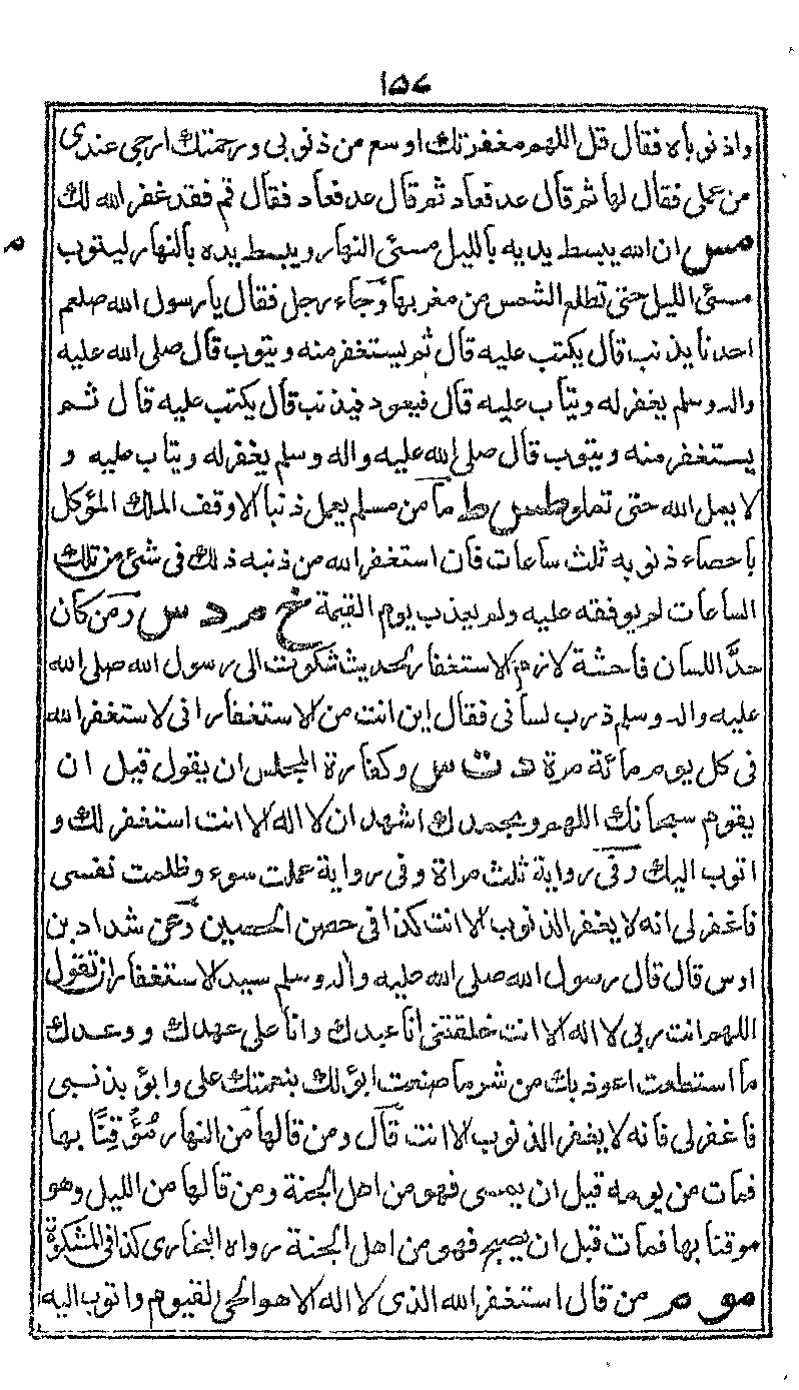 ۱۵۷
واذنوباه فقال قل اللهم مغفرتك اوسع من ذنوبى ورحمتك ارجى عندى
من عملى فقال لها ثم قال عد فعاد ثم قال عد فعاد فقال قم فقد غفر الله لك
مس ان الله يبسط يديه بالليل مسئى النهار ويبسط يده بالنهار ليتوب
م
مسئى الليل حتى تطلع الشمس من مغربها وجاء رجل فقال يا رسول الله صلعم
احدنا يذنب قال يكتب عليه قال ثم يستغفر منه ويتوب قال صلى الله عليه
واله وسلم يغفر له ويتاب عليه قال فيعود فيذنب قال يكتب عليه قال ثم
يستغفر منه ويتوب قال صلى الله عليه واله وسلم يغفر له ويتاب عليه و
لا يمل الله حتى تملو طس ط ما من مسلم يعمل ذنبا الا وقف الملك المؤكل
باحصاء ذنوبه ثلث ساعات فان استغفر الله من ذنبه ذلك فى شئ من تلك
الساعات لم يوقفه عليه ولم يعذب يوم القيمة خ م د س ومن كان
حدَّ اللسان فاحشة لازم الاستغفار لحديث شكوت الى رسول الله صلى الله
عليه واله وسلم ذرب لسانى فقال اين انت من الاستغفار انى لاستغفر الله
فى كل يوم مائة مرة د ت س وكفارة المجلس ان يقول قبل ان
يقوم سبحانك اللهم وبحمدك اشهد ان لا اله الا انت استغفرلك و
اتوب اليك وفى رواية ثلث مراة وفى رواية عملت سوء وظلمت نفسى
فاغفرلى انه لا يغفر الذنوب الا انت كذا فى حصن الحصين وعن شداد بن
اوس قال قال رسول الله صلى الله عليه واله وسلم سيد الاستغفار ان تقول
اللهم انت ربى لا اله الا انت خلقتنى انا عبدك وانا على عهدك ووعدك
ما استطعت اعوذ بك من شر ما صنعت ابؤلك بنعمتك على وابؤ بذنبى
فاغفرلى فانه لا يغفر الذنوب الا انت قال ومن قالها من النهار مُؤقِنًا بها
فمات من يومه قبل ان يمسى فهو من اهل الجنة ومن قالها من الليل وهو
موقنا بها فمات قبل ان يصبح فهو من اهل الجنة رواه البخارى كذا فى المشكوة
مو مر من قال استغفر الله الذى لا اله الا هو الحى القيوم واتوب اليه